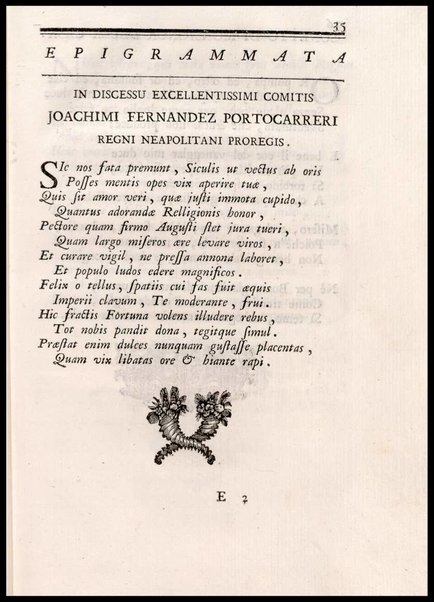 35
EPIGRAMMATA
IN DISCESSU EXCELLENTISSIMI COMITIS
JOACHIMI FERNANDEZ PORTOCARRERI
REGNI NEAPOLITANI PROREGIS.
SIc nos fata premunt, Siculis ut vectus ab oris
Posses mentis opes vix aperire tuæ,
Quis sit amor veri, quæ justi immota cupido,
Quantus adorandæ Relligionis honor,
Pectore quam firmo Augusti stet jura tueri,
Quam largo miseros ære levare viros,
Et curare vigil, ne pressa annona laboret,
Et populo ludos edere magnificos.
Felix o tellus, spatiis cui fas fuit æquis
Imperii clavum, Te moderante, frui.
Hic fractis Fortuna volens illudere rebus,
Tot nobis pandit dona, tegitque simul.
Præstat enim dulces nunquam gustasse placentas,
Quam vix libatas ore & hiante rapi.
E 2